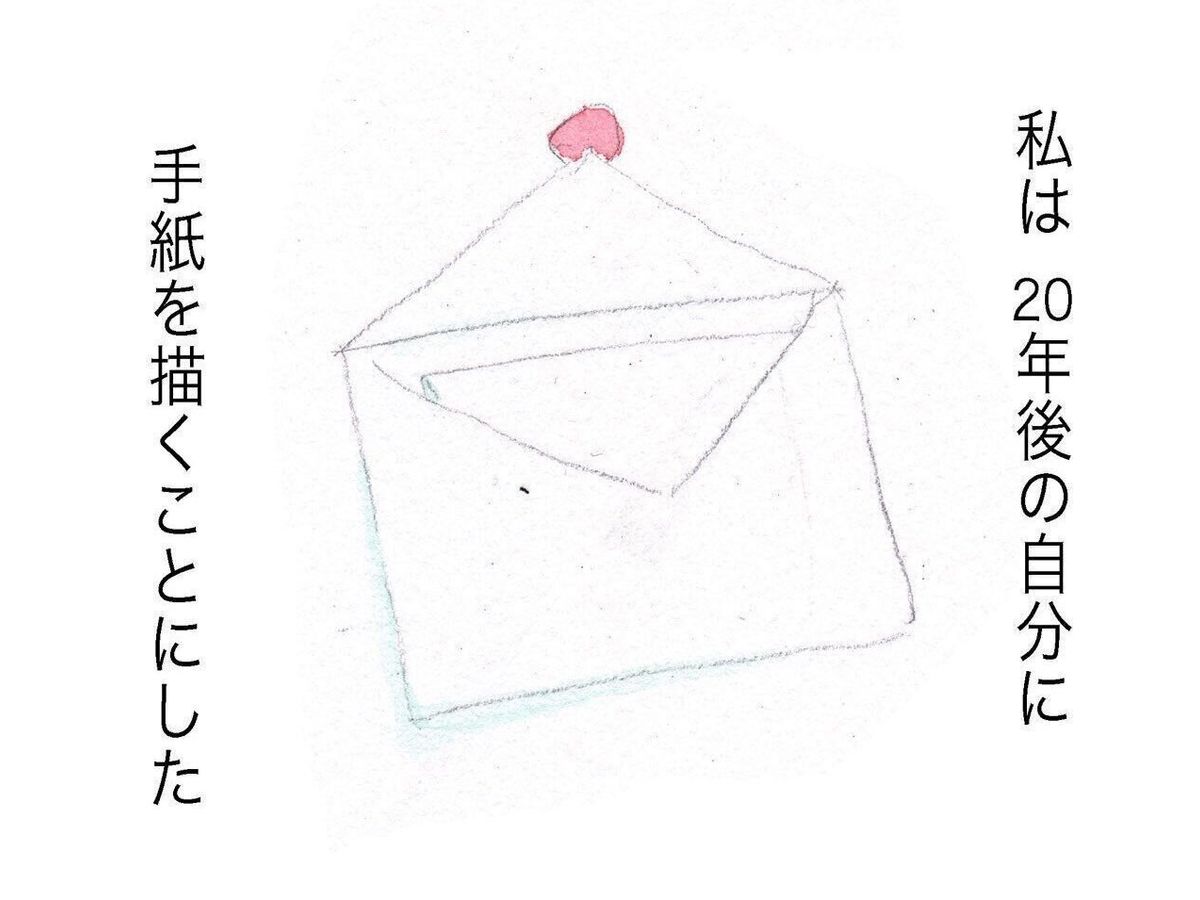 私は 20年後の自分に
手紙を描くことにした